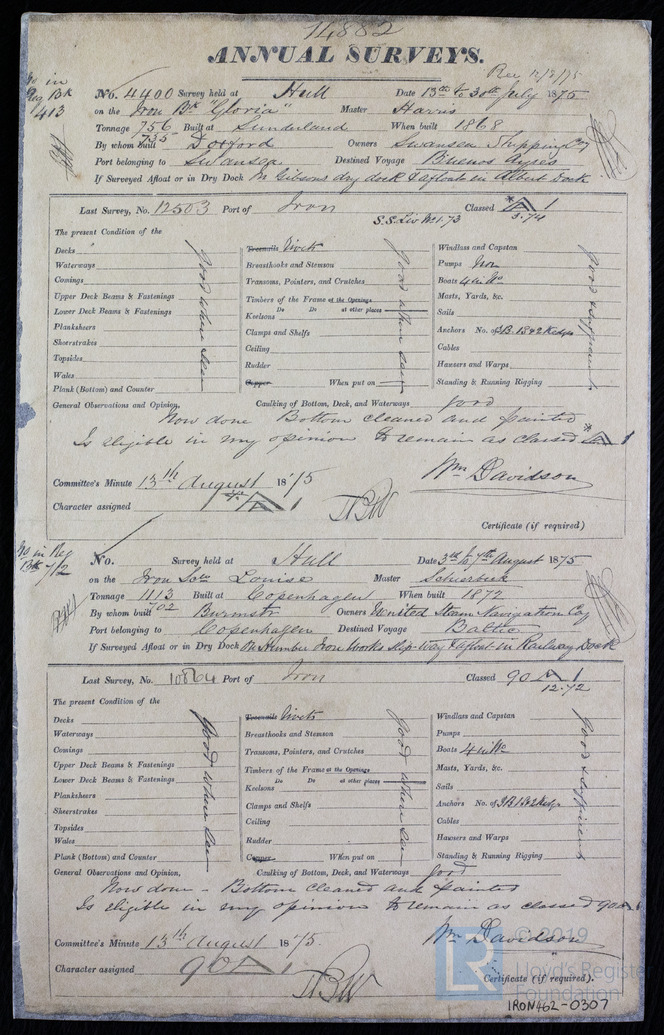 14882
ANNUAL SURVEYS.
Rec 12/8/75
No in
Reg Bk
413
No. 4400 Survey held at Hull Date 13th to 30th July 1875
on the Iron Bk "Gloria" Master Harris
Tonnage 756 Built at Sunderland When built 1868
735
By whom built Doxford Owners Swansea Shipping Coy
Port belonging to Swansea Destined Voyage Buenos Ayres
If Surveyed Afloat or in Dry Dock In Gibsons dry dock & afloat in Albert Dock
Last Survey, No. 12503 Port of Iron Classed * A 1
S.S. Liv 3.74
The present Condition of the
Decks Treenails Rivets Windlass and Capstan
Waterways Breasthooks and Stemson Pumps Iron
Comings Transoms, Pointers, and Crutches Boats 4 in No
Upper Deck Beams & Fastenings Timbers of the Frame at the Openings Masts, Yards, &c.
Lower Deck Beams & Fastenings Do Do at other places Sails
Keelsons
Planksheers Clamps and Shelfs Anchors No. of 3B. 1S & 2 Kedge
Sheerstrakes Ceiling Cables
Topsides Rudder Hawsers and Warps
Wales Copper When put on Standing & Running Rigging
Plank (Bottom) and Counter
good where seen
good where seen
good & sufficient
General Observations and Opinion, Caulking of Bottom, Deck, and Waterways good
Now done Bottom cleaned and painted
Is eligible in my opinion to remain as classed * A 1
Wm Davidson
Committee's Minute 13th August 1875
Character assigned A 1
Certificate (if required)
No in Reg
Bk
No. Survey held at Hull Date 3rd to 7th August 1875
on the Iron Scr Louise Master
Tonnage 1113 Built at Copenhagen When built 1872
702
By whom built Burmstr Owners United Steam Navigation Coy
Port belonging to Copenhagen Destined Voyage Baltic
If Surveyed Afloat or in Dry Dock On Humber Iron Works Slip-way & afloat in Railway Dock
Last Survey, No. 10864 Port of Iron Classed 90 A 1
12.72
The present Condition of the
Decks Treenails Rivets Windlass and Capstan
Waterways Breasthooks and Stemson Pumps
Comings Transoms, Pointers, and Crutches Boats 4 in No
Upper Deck Beams & Fastenings Timbers of the Frame at the Openings Masts, Yards, &c.
Lower Deck Beams & Fastenings Do Do at other places Sails
Keelsons
Planksheers Clamps and Shelfs Anchors No. of 3B 1S & 2 Kedge
Sheerstrakes Ceiling Cables
Topsides Rudder Hawsers and Warps
Wales Copper When put on Standing & Running Rigging
Plank (Bottom) and Counter
good where seen
good where seen
good & sufficient
General Observations and Opinion, Caulking of Bottom, Deck, and Waterways good
Now done - Bottom cleaned and painted
Is eligible in my opinion to remain as classed 90 A 1
Wm Davidson
Committee's Minute 13th August 1875.
Character assigned 90 A 1
Certificate (if required).
LR
© 2019
Lloyd's Register
Foundation
IRON462-0307